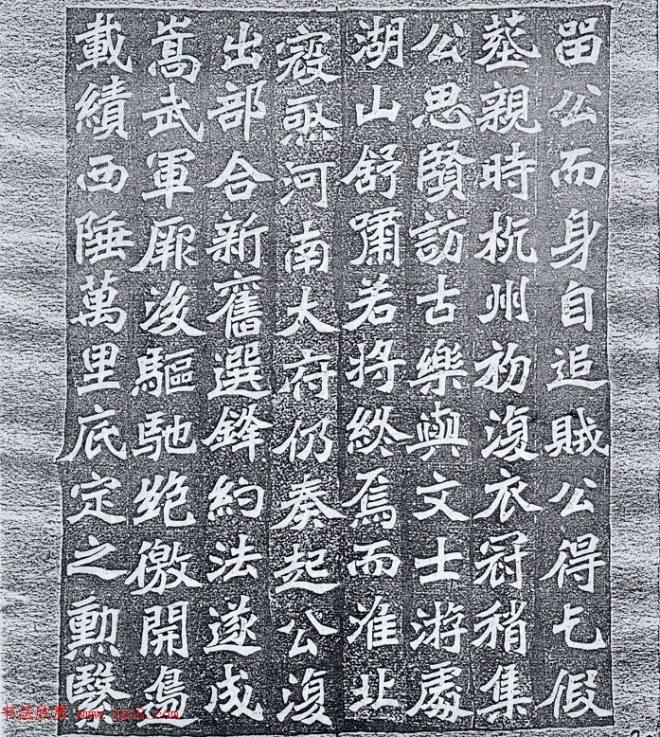 留公而身自追賊公得乞假
墓親時杭州初復衣冠稍集
公思賢訪古樂與文士游處
湖山舒嘯若将終焉而淮北
寇熾河南大府仍奏起公復
出部合新舊選鋒約法遂成
嵩武軍厥後驅馳絶徼開邊
載績西陲萬里底定之勲
书法欣赏 www.yac8.com